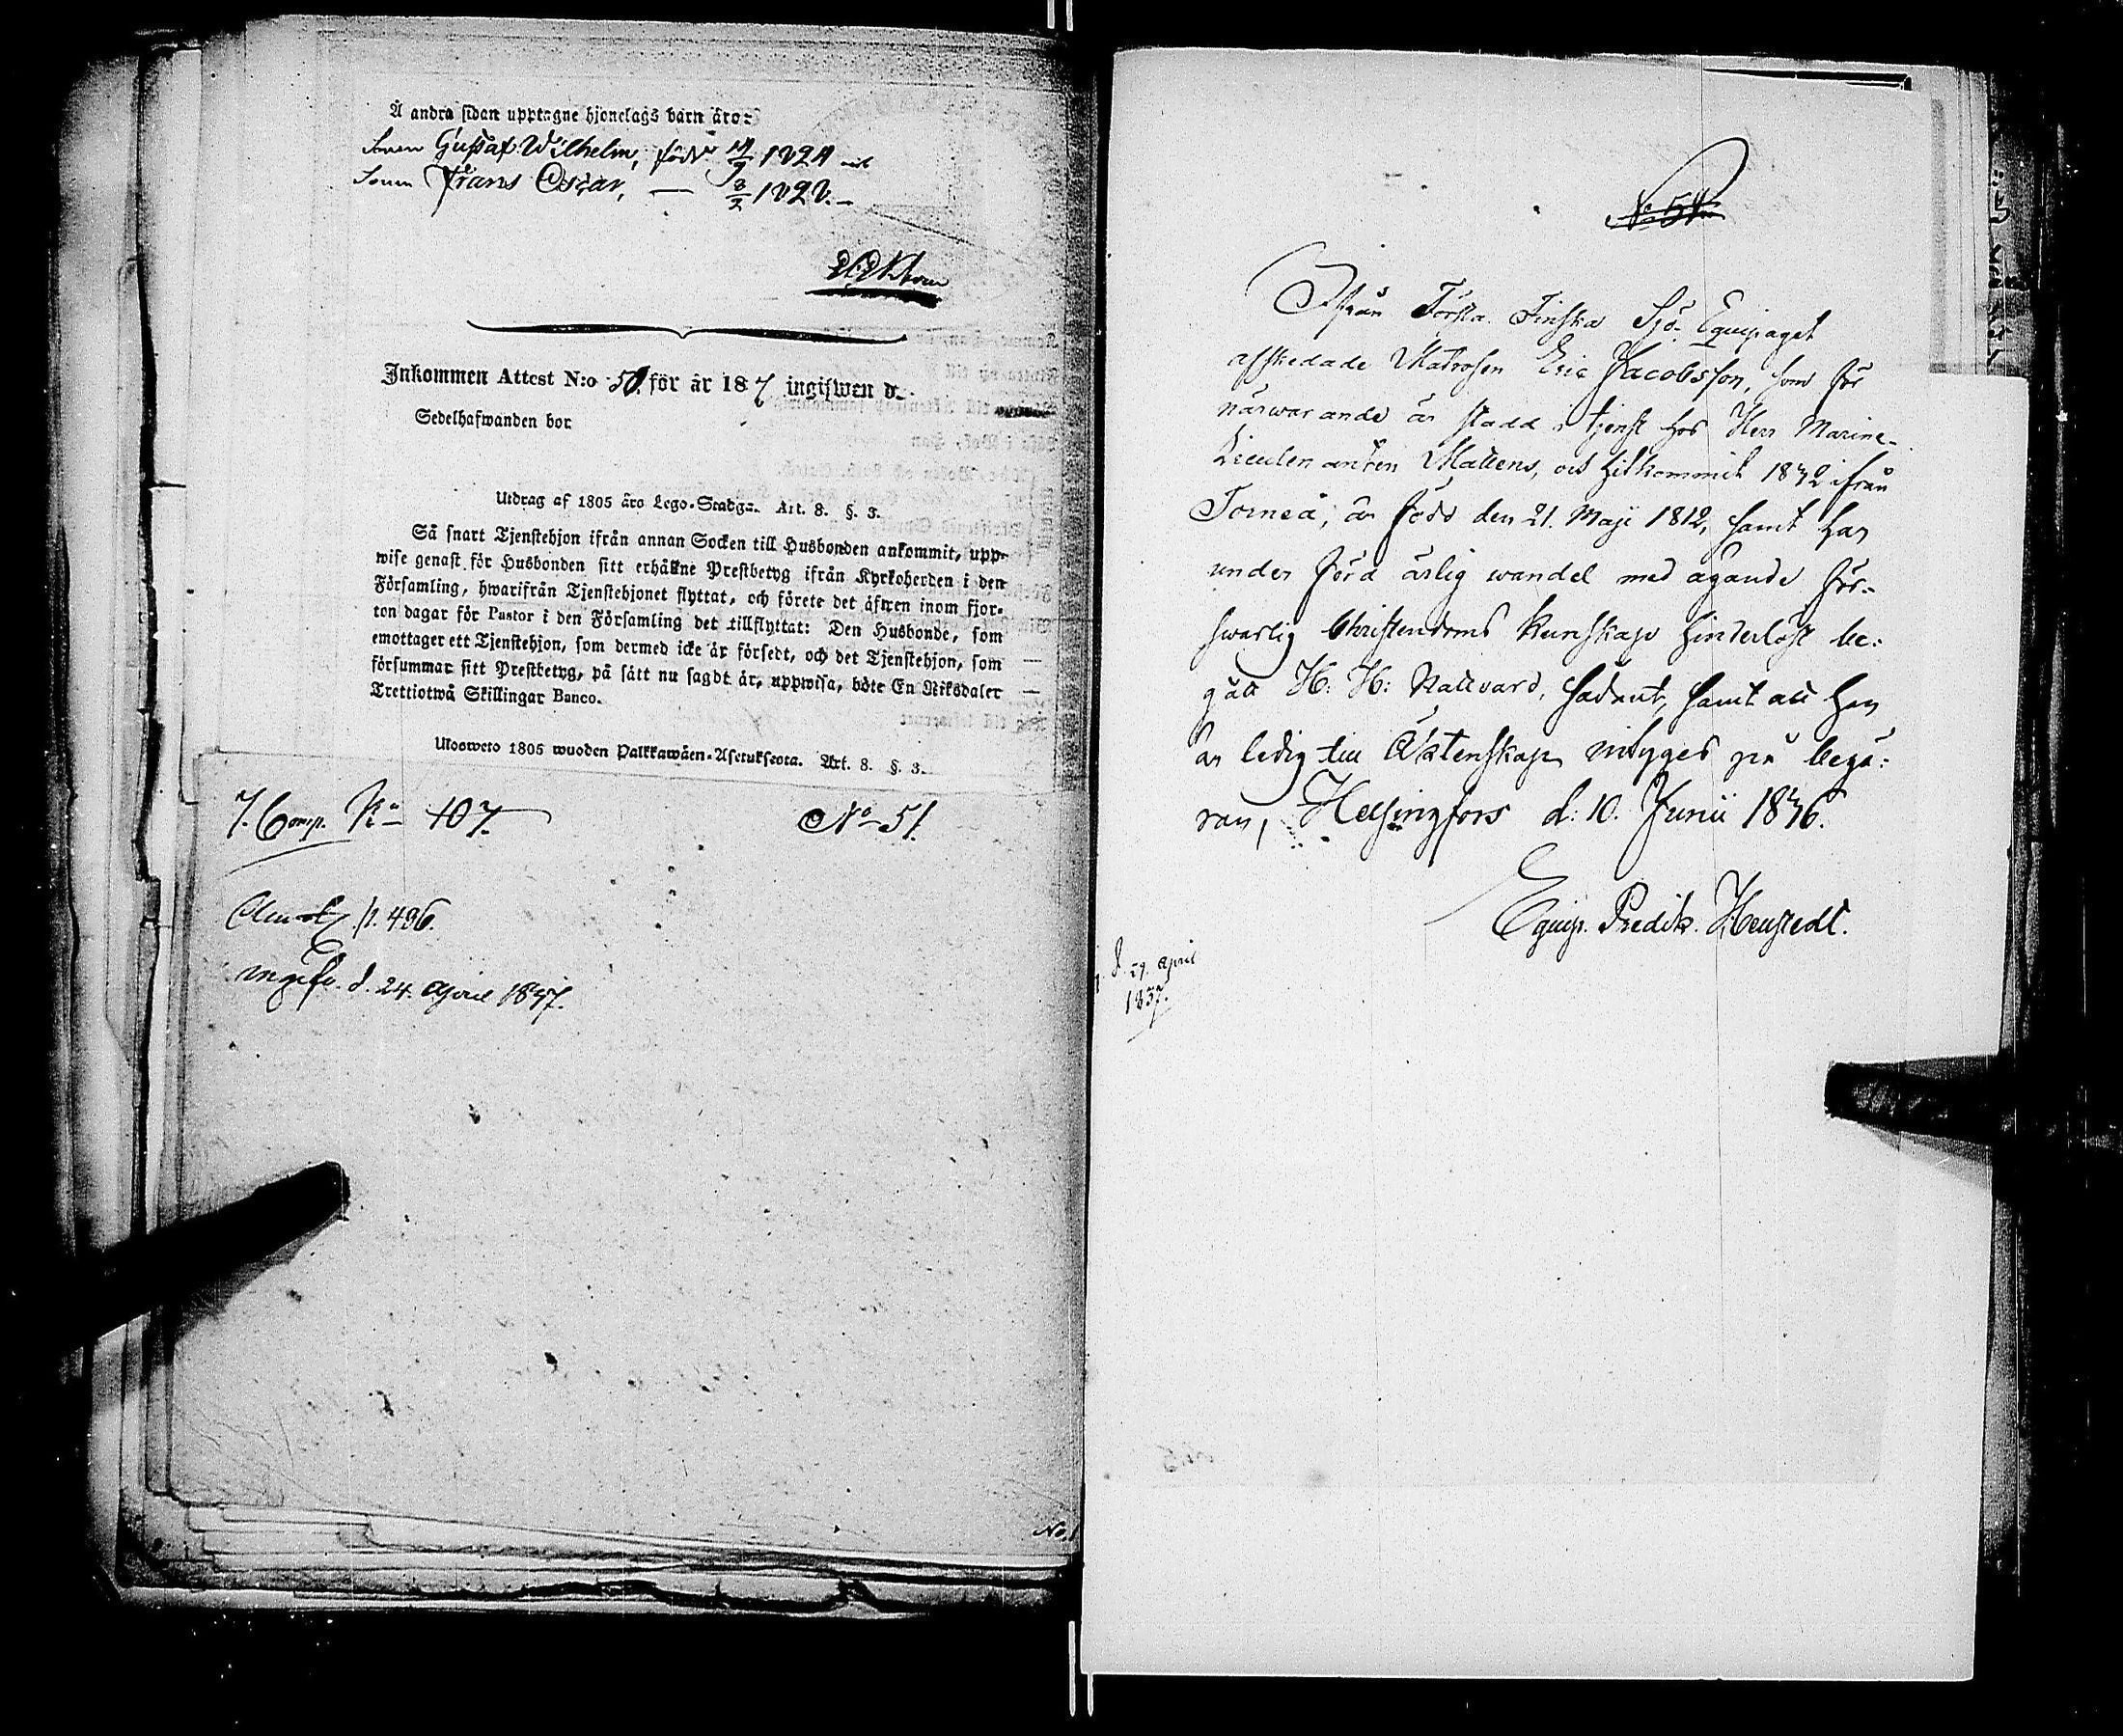 Å andra sidan upptagne hjonelags barn äro:
Sonen Gustaf Wilhelm, född 1824
Sonen Frans Oscar, — 8/2 1828. —
Inkommen Attest N:o 50. för år 187 ingifwen d.
Sedelhafwanden bor
Utdrag af 1805 års Lego-Stadga. Art. 8. §. 3.
Så snart Tjenstehjon ifrån annan Socken till Husbonden ankommit, upp-
wise genast för Husbonden sitt erhållne Prestbetyg ifrån Kyrkoherden i den
Församling, hwarifrån Tjenstehjonet flyttat, och förete det äfwen inom fjor-
ton dagar för Pastor i den Församling det tillflyttat: Den Husbonde, som
emottager ett Tjenstehjon, som dermed icke är försedt, och det Tjenstehjon, som
försummar sitt Prestbetyg, på sätt nu sagdt är, uppwisa, böte En Riksdaler
Trettiotwå Skillingar Banco.
Ulosweto 1805 wuoden Palkkawäen-Asetuksesta. Art. 8. §. 3.
7. Comp. No 107.
No 51.
p. 496.
ingifv. d. 24. April 1837.
No 51
Ifrån Första Finska Sjö-Equipaget
afskedade Matrosen Eric Jacobsson, som för
närwarande är stadd i tjenst hos Herr Marine-
Lieutenanten Mattens, och hitkommit 1832 ifrån
Torneå, är född den 21. Maji 1812, samt har
under förd ärlig wandel med ägande för-
swarlig Christendoms kunskap hinderlöst be-
gått H: H: Nattvard, sådant, samt att han
är ledig till Äktenskap, intygas på begä-
ran, Helsingfors d: 10. Junii 1836.
Equip. Predik. Henstedt.
d. 29. April
1837.